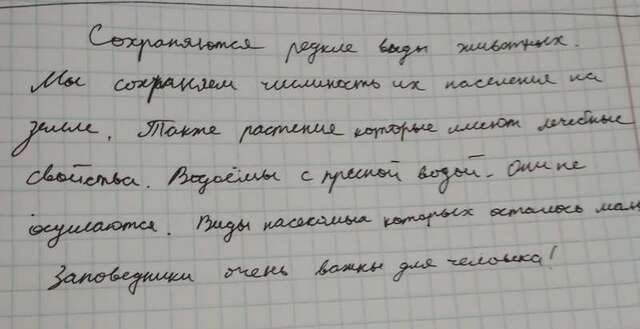 Сохраняются редкие виды животных.
Мы сохраняем числиность их населения на
земле. Также растение которые имеют лечебные
свойства. Водоёмы с пресной водой. Они не
осушаются. Виды насекомых которых осталось мал
Заповедники очень важны для человека!